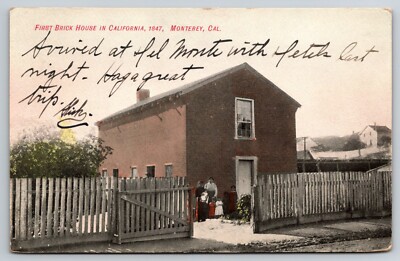 FIRST BRICK HOUSE IN CALIFORNIA, 1847, MONTEREY, CAL.
Arrived at Del Monte with Petels last
night. Had a great
trip.